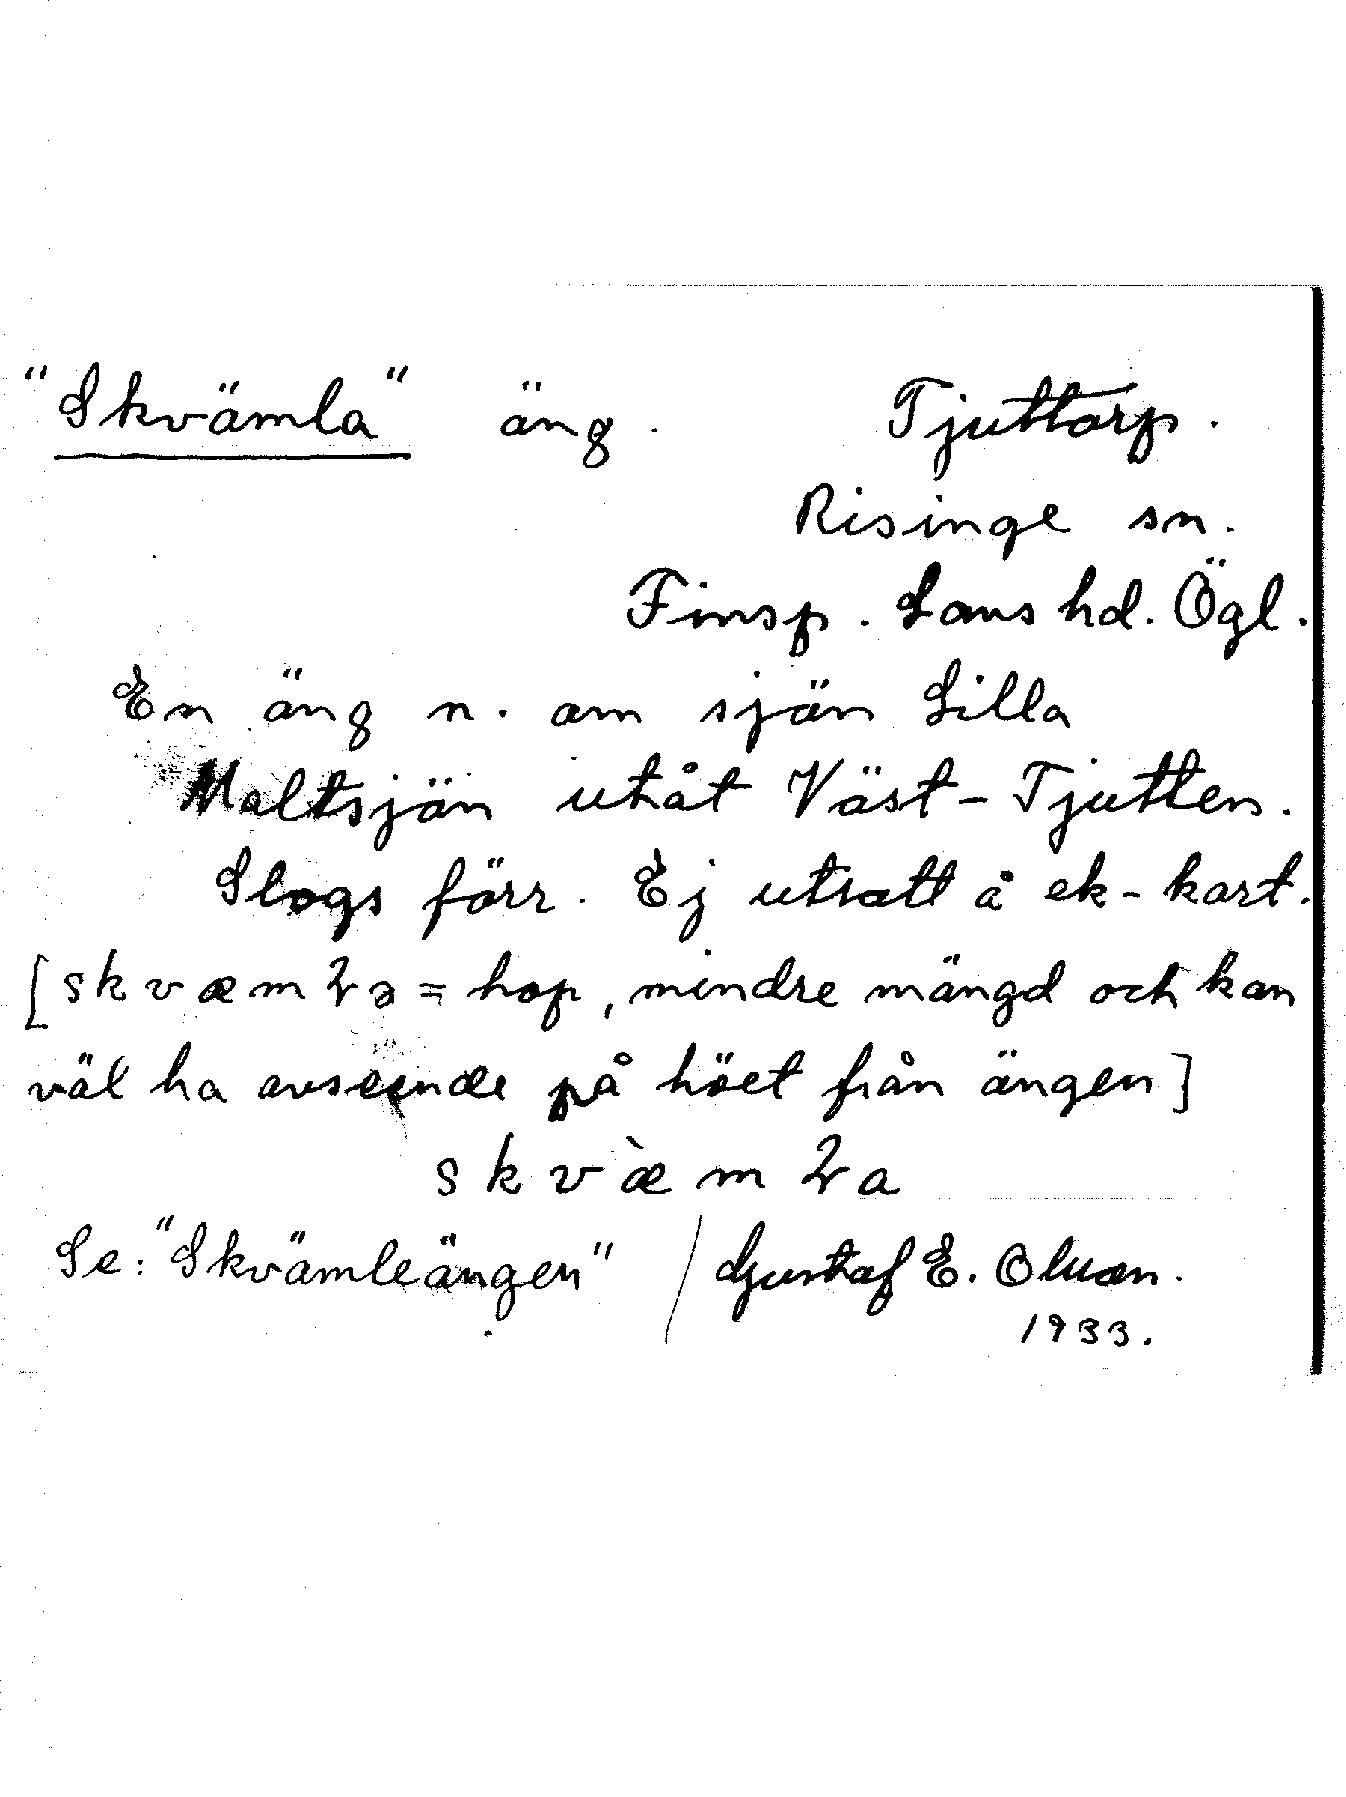 "Skvämla" äng. Tjuttorp.
Risinge sn.
Finsp. Läns hd. Ögl.
En äng n. om sjön Lilla
Maltsjön utåt Väst-Tjutten.
Slogs förr. Ej utsatt å ek-kart.
[skvæmɭə = hop, mindre mängd och kan
väl ha avseende på höet från ängen]
skvæ̀mɭa
Se: "Skvämleängen" / Gustaf E. Olsson.
1933.